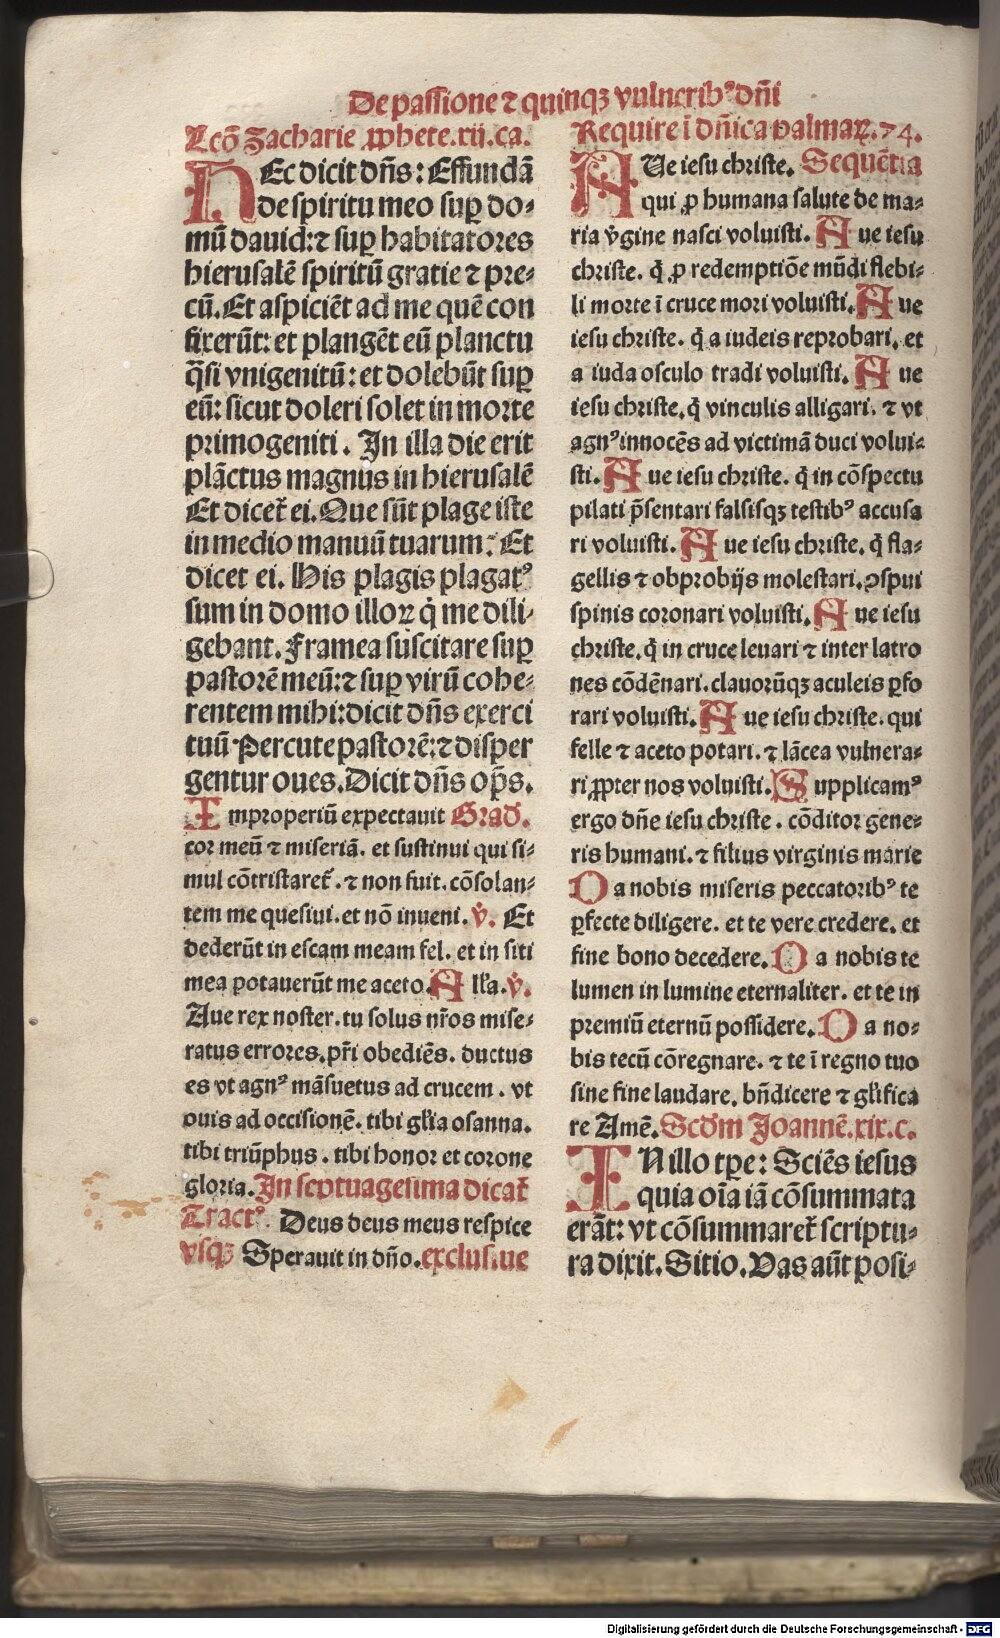 De passione ⁊ quinqꝫ vulneribꝰ dñi
Lcō Zacharie ꝓphete.xii.ca.
HEc dicit dñs: Effundā
de spiritu meo suꝑ do-
mū dauid:⁊ suꝑ habitatores
hierusalē spiritū gratie ⁊ pre-
cū.Et aspiciēt ad me quē con
fixerūt: et plangēt eū planctu
q̄si vnigenitū: et dolebūt suꝑ
eū: sicut doleri solet in morte
primogeniti. In illa die erit
plāctus magnus in hierusalē
Et dicet̄ ei. Que sūt plage iste
in medio manuū tuarum: Et
dicet ei. His plagis plagatꝰ
sum in domo illoꝝ q̇ me dili-
gebant. Framea suscitare suꝑ
pastorē meū:⁊ suꝑ virū cohe-
rentem mihi:dicit dñs exerci
tuū Percute pastorē:⁊ disper
gentur oues. Dicit dñs op̄s.
Improperiū expectauit Grad̄.
cor meū ⁊ miseriā. et sustinui qui si-
mul cōtristaret̄. ⁊ non fuit. cōsolan-
tem me quesiui. et nō inueni. v̇. Et
dederūt in escam meam fel. et in siti
mea potauerūt me aceto. All'a. v̇.
Aue rex noster. tu solus nr̄os mise-
ratus errores. pr̄i obediēs. ductus
es vt agnꝰ māsuetus ad crucem. vt
ouis ad occisionē. tibi gl'ia osanna.
tibi triūphus. tibi honor et corone
gloria. In septuagesima dicat̄
Tractꝰ. Deus deus meus respice
vsqꝫ Sperauit in dño. exclusiue
Require ī dñica palmaꝝ. 74.
AUe iesu christe. Sequētia
qui ꝓ humana salute de ma-
ria v̇gine nasci voluisti. Aue iesu
christe. q̇ ꝓ redemptiōe mūdi flebi-
li morte ī cruce mori voluisti. Aue
iesu christe. q̇ a iudeis reprobari. et
a iuda osculo tradi voluisti. Aue
iesu christe. q̇ vinculis alligari. ⁊ vt
agnꝰ innocēs ad victimā duci volui-
sti. Aue iesu christe. q̇ in cōspectu
pilati p̄sentari falsisqꝫ testibꝰ accusa
ri voluisti. Aue iesu christe. q̇ fla-
gellis ⁊ obprobijs molestari. ꝯspui
spinis coronari voluisti. Aue iesu
christe. q̇ in cruce leuari ⁊ inter latro
nes cōdēnari. clauorūqꝫ aculeis ꝑfo
rari voluisti. Aue iesu christe. qui
felle ⁊ aceto potari. ⁊ lācea vulnera-
ri ꝓpter nos voluisti. Supplicamꝰ
ergo dñe iesu christe. cōditor gene-
ris humani. ⁊ filius virginis marie
Da nobis miseris peccatoribꝰ te
ꝑfecte diligere. et te vere credere. et
fine bono decedere. Da nobis te
lumen in lumine eternaliter. et te in
premiū eternū possidere. Da no-
bis tecū cōregnare. ⁊ te ī regno tuo
sine fine laudare. bn̄dicere ⁊ gl'ifica
re Amē. Scd̄m Joannē.xix.c.
IN illo tꝑe: Sciēs iesus
quia oīa iā cōsummata
erāt: vt cōsummaret̄ scriptu-
ra dixit. Sitio. Vas aūt posi-
Digitalisierung gefördert durch die Deutsche Forschungsgemeinschaft - DFG